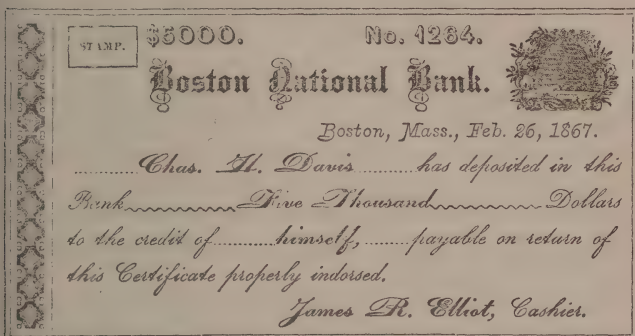 STAMP.
$5000. No. 1284.
Boston National Bank.
Boston, Mass., Feb. 26, 1867.
Chas. H. Davis has deposited in this
Bank Five Thousand Dollars
to the credit of himself, payable on return of
this Certificate properly indorsed.
James R. Elliot, Cashier.